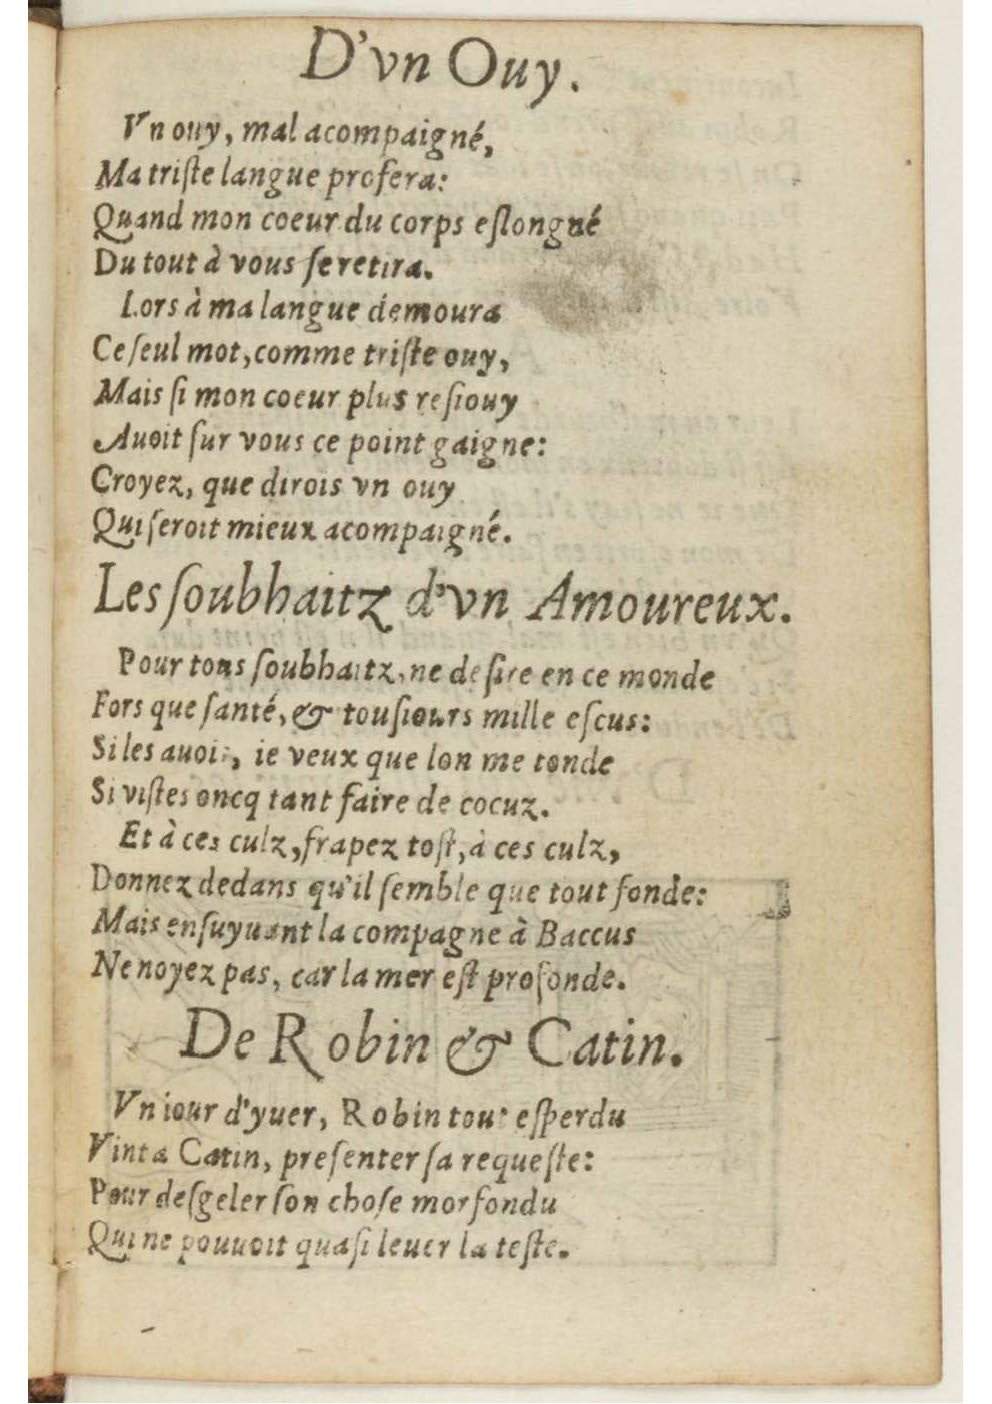 D'vn Ouy.
Vn ouy, mal acompaigné,
Ma triſte langue profera:
Quand mon coeur du corps eſlongné
Du tout à vous ſe retira.
Lors à ma langue demoura
Ce ſeul mot, comme triſte ouy,
Mais ſi mon coeur plus reſiouy
Auoit ſur vous ce point gaigne:
Croyez, que dirois vn ouy
Qui ſeroit mieux acompaigné.
Les ſoubhaitz d'vn Amoureux.
Pour tous ſoubhaitz, ne deſire en ce monde
Fors que ſanté, & touſiours mille eſcus:
Si les auoir, ie veux que lon me tonde
Si viſtes oncq tant faire de cocuz.
Et à ces culz, frapez toſt, à ces culz,
Donnez dedans qu'il ſemble que tout fonde:
Mais enſuyuant la compagne à Baccus
Ne noyez pas, car la mer eſt profonde.
De Robin & Catin.
Vn iour d'yuer, Robin tout eſperdu
Vint a Catin, preſenter ſa requeſte:
Pour deſgeler ſon choſe morfondu
Qui ne pouuoit quaſi leuer la teſte.